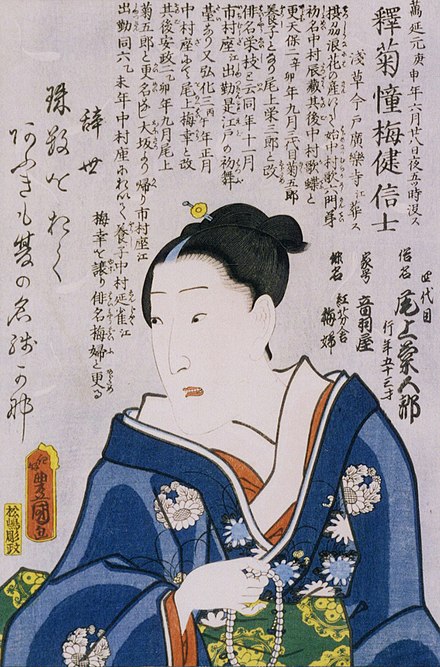 萬延元庚申年六月廿八日夜五ッ時没ス
釋菊憧梅健信士
淺草今戸廣樂寺江葬ス
摂州浪花の産にして始中村歌六門弟
初名中村辰蔵其後中村歌蝶と
更天保二辛卯年九月三代目菊五郎
養子となり尾上栄三郎と改
俳名栄枝と云同年十一月
市村座江出勤是江戸の初舞
臺なり又弘化三丙午年正月
中村座ニおゐて尾上梅幸と改
其後安政二乙卯年九月尾上
菊五郎と更名なし大坂より帰り市村座江
出勤同六己未年中村座におゐて養子中村延雀江
梅幸を譲り俳名梅婦と更る
四代目
俗名 尾上菊五郎
行年五十三才
家号 音羽屋
俳名 梅婦
辞世
豊国画
松嶋彫政